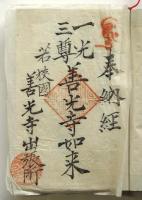 奉納経
一光
三尊
善光寺如来
若狭國
善光寺出張所